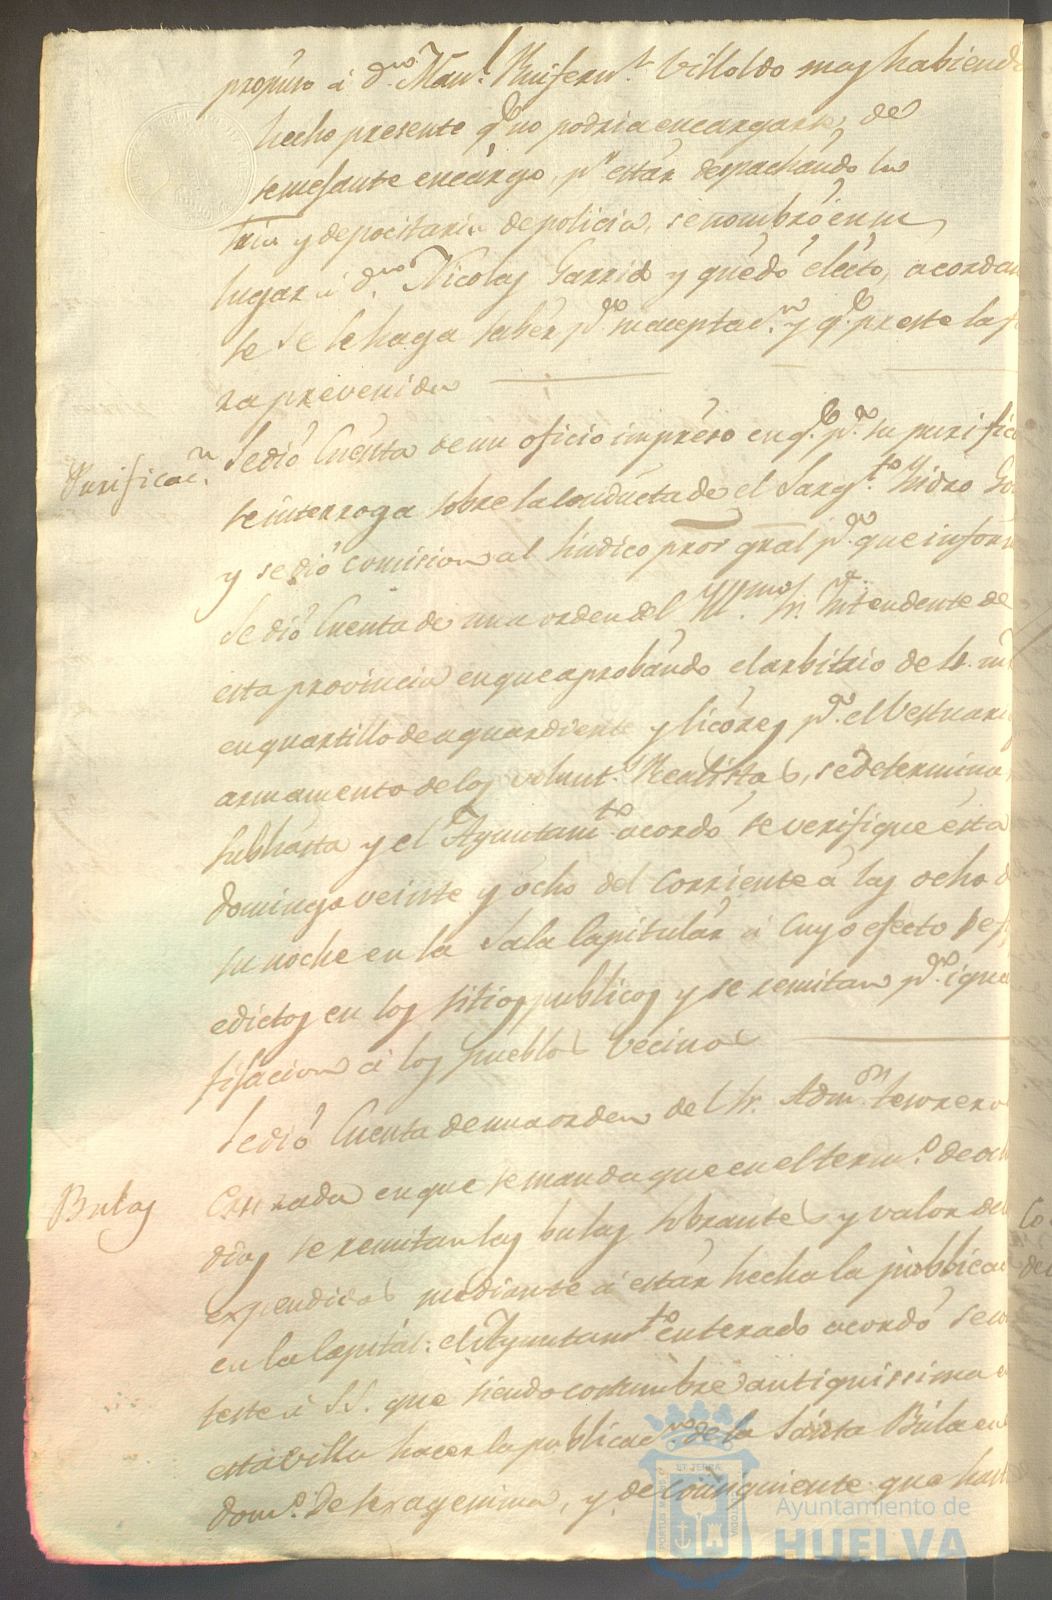 propuso á Dn. Manl. Villoldo mas habiend
hecho presente qe. no podria encargarse de
semejante encárgo, pr. estár despachándo la
Tria. y depocitaria de policia, se nombró en su
lugar á Dn. Nicolas Garrido y quedó elécto, acordan
se se le haga sabér pa. su aceptacn. y qe. preste la
za prevenida
Purificacn.
Se dió Cuenta de un oficio impréso en qe. pa. su purific
se interroga sobre la conducta de el Sargto. Ysidro
y se dió comision al Sindico pror gral pa. que inform
Se dió Cuenta de una orden del Yllmo. Sr. Yntendente de
esta provincia en que aprobándo el arbitrio de 4. m
en quartillo de aguardiente y licóres pa. el Vestuari
armamento de los volunts. Realistas, se determina
Subhásta y el Ayuntamto. acordó se verifique ésta
domingo veinte y ócho del Corriente á las ocho d
su noche en la Sala Capitulár á Cuyo efecto se
edictos en los sitios publicos y se remitan pa. igua
fijacion á los pueblos vecinos
Se dió Cuenta de una orden del Sr. Admon. tesorero
Bulas
Cruzada en que se manda que en el termo. de och
dias se remitan las bulas sobrantes y valor de
expendidas mediante á estár hecha la publicac
en la Capital: el Ayuntamto. enterado acordó se con
teste á SS. que siendo costumbre antiquissima e
esta Villa hacer la publicacn. de la Sánta Búla en
domo. de sexagesima, y de consiguiente que hast
Ayuntamiento de
HUELVA